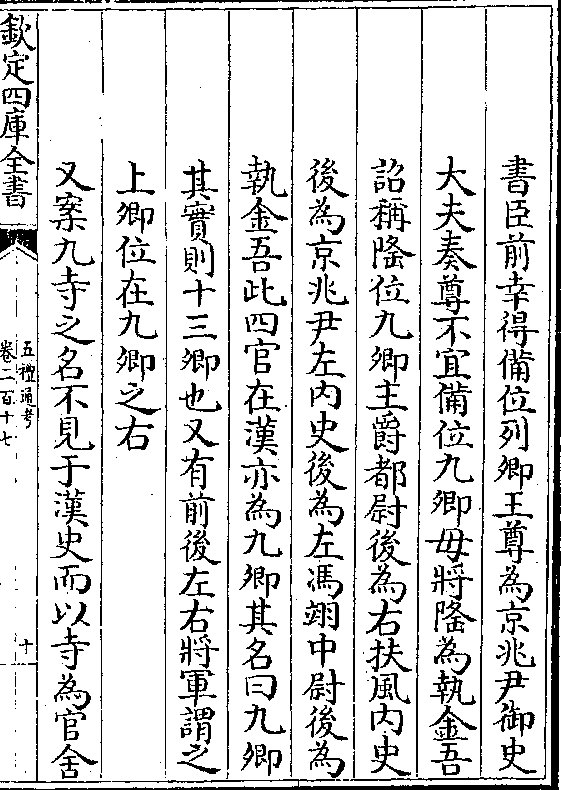 書臣前幸得備位列卿王尊為京兆尹御史
大夫奏尊不宜備位九卿毋將隆為執金吾
詔稱隆位九卿主爵都尉後為右扶風内史
後為京兆尹左内史後為左馮翊中尉後為
執金吾此四官在漢亦為九卿其名曰九卿
其實則十三卿也又有前後左右將軍謂之
上卿位在九卿之右
又案九寺之名不見于漢史而以寺為官舍
欽定四庫全書
五禮通考
卷二百十七
十